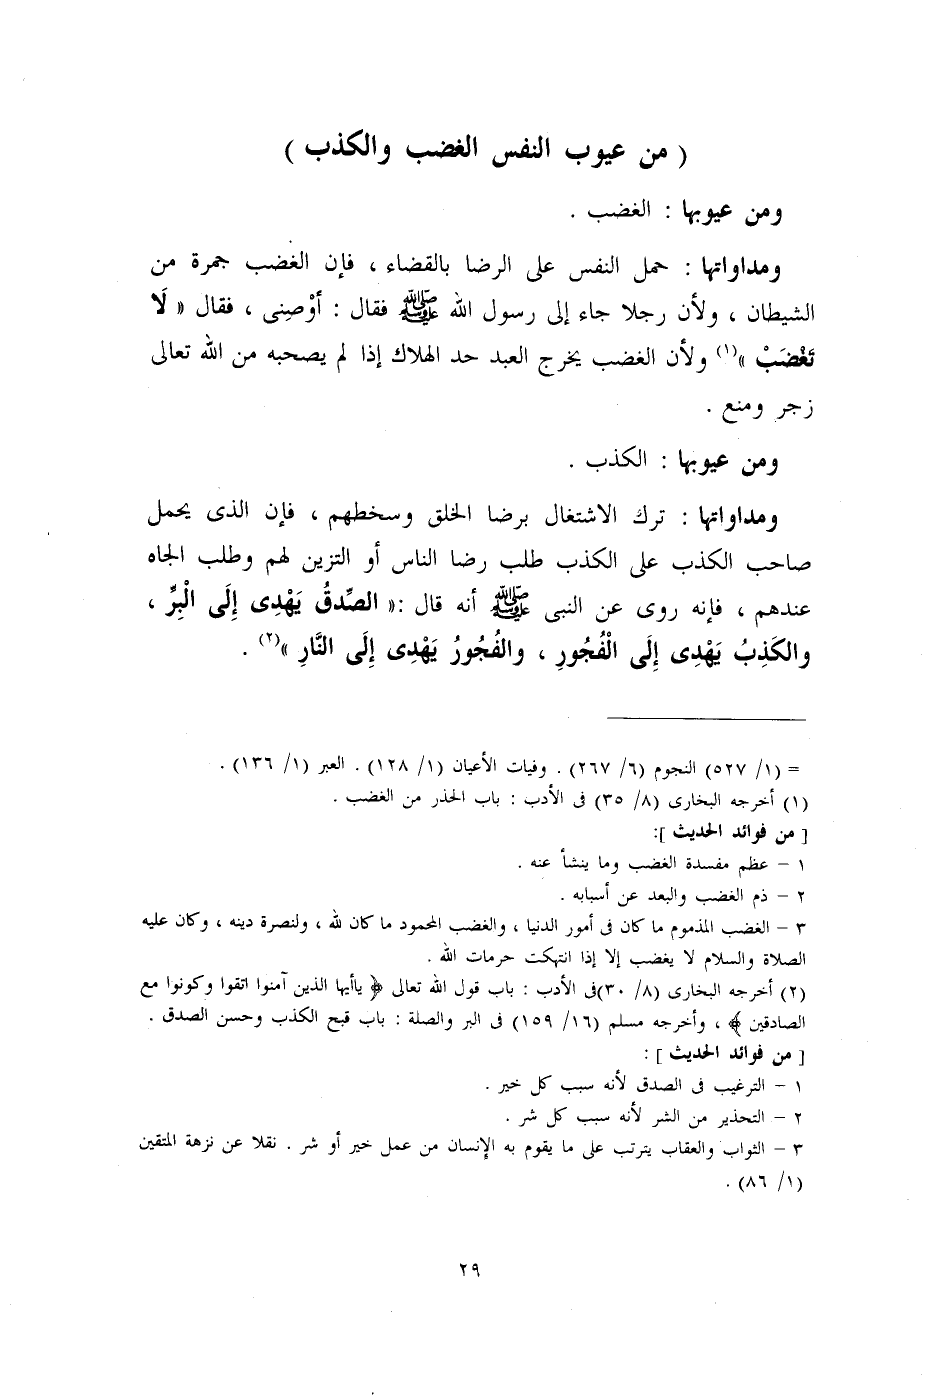 ( من عيوب النفس الغضب والكذب )
ومن عيوبها : الغضب .
ومداواتها : حمل النفس على الرضا بالقضاء ، فإن الغضب جمرة من
الشيطان ، ولأن رجلا جاء إلى رسول الله ﷺ فقال : أوْصِنى ، فقال « لَا
تَغْضَبْ »(١) ولأن الغضب يخرج العبد حد الهلاك إذا لم يصحبه من الله تعالى
زجر ومنع .
ومن عيوبها : الكذب .
ومداواتها : ترك الاشتغال برضا الخلق وسخطهم ، فإن الذى يحمل
صاحب الكذب على الكذب طلب رضا الناس أو التزين لهم وطلب الجاه
عندهم ، فإنه روى عن النبى ﷺ أنه قال :« الصِّدقُ يَهْدِى إِلَى الْبِرِّ ،
والكَذِبُ يَهْدِى إِلَى الْفُجُورِ ، والفُجُورُ يَهْدِى إِلَى النَّارِ »(٢) .
= (١/ ٥٢٧) النجوم (٦/ ٢٦٧) . وفيات الأعيان (١/ ١٢٨) . العبر (١/ ١٣٦) .
(١) أخرجه البخارى (٨/ ٣٥) فى الأدب : باب الحذر من الغضب .
[ من فوائد الحديث ]:
١ – عظم مفسدة الغضب وما ينشأ عنه .
٢ – ذم الغضب والبعد عن أسبابه .
٣ – الغضب المذموم ما كان فى أمور الدنيا ، والغضب المحمود ما كان لله ، ولنصرة دينه ، وكان عليه
الصلاة والسلام لا يغضب إلا إذا انتهكت حرمات الله .
(٢) أخرجه البخارى (٨/ ٣٠)فى الأدب : باب قول الله تعالى ﴿ ياأيها الذين آمنوا اتقوا وكونوا مع
الصادقين ﴾ ، وأخرجه مسلم (١٦/ ١٥٩) فى البر والصلة : باب قبح الكذب وحسن الصدق .
[ من فوائد الحديث ] :
١ – الترغيب فى الصدق لأنه سبب كل خير .
٢ – التحذير من الشر لأنه سبب كل شر .
٣ – الثواب والعقاب يترتب على ما يقوم به الإنسان من عمل خير أو شر . نقلا عن نزهة المتقين
(١/ ٨٦) .
٢٩